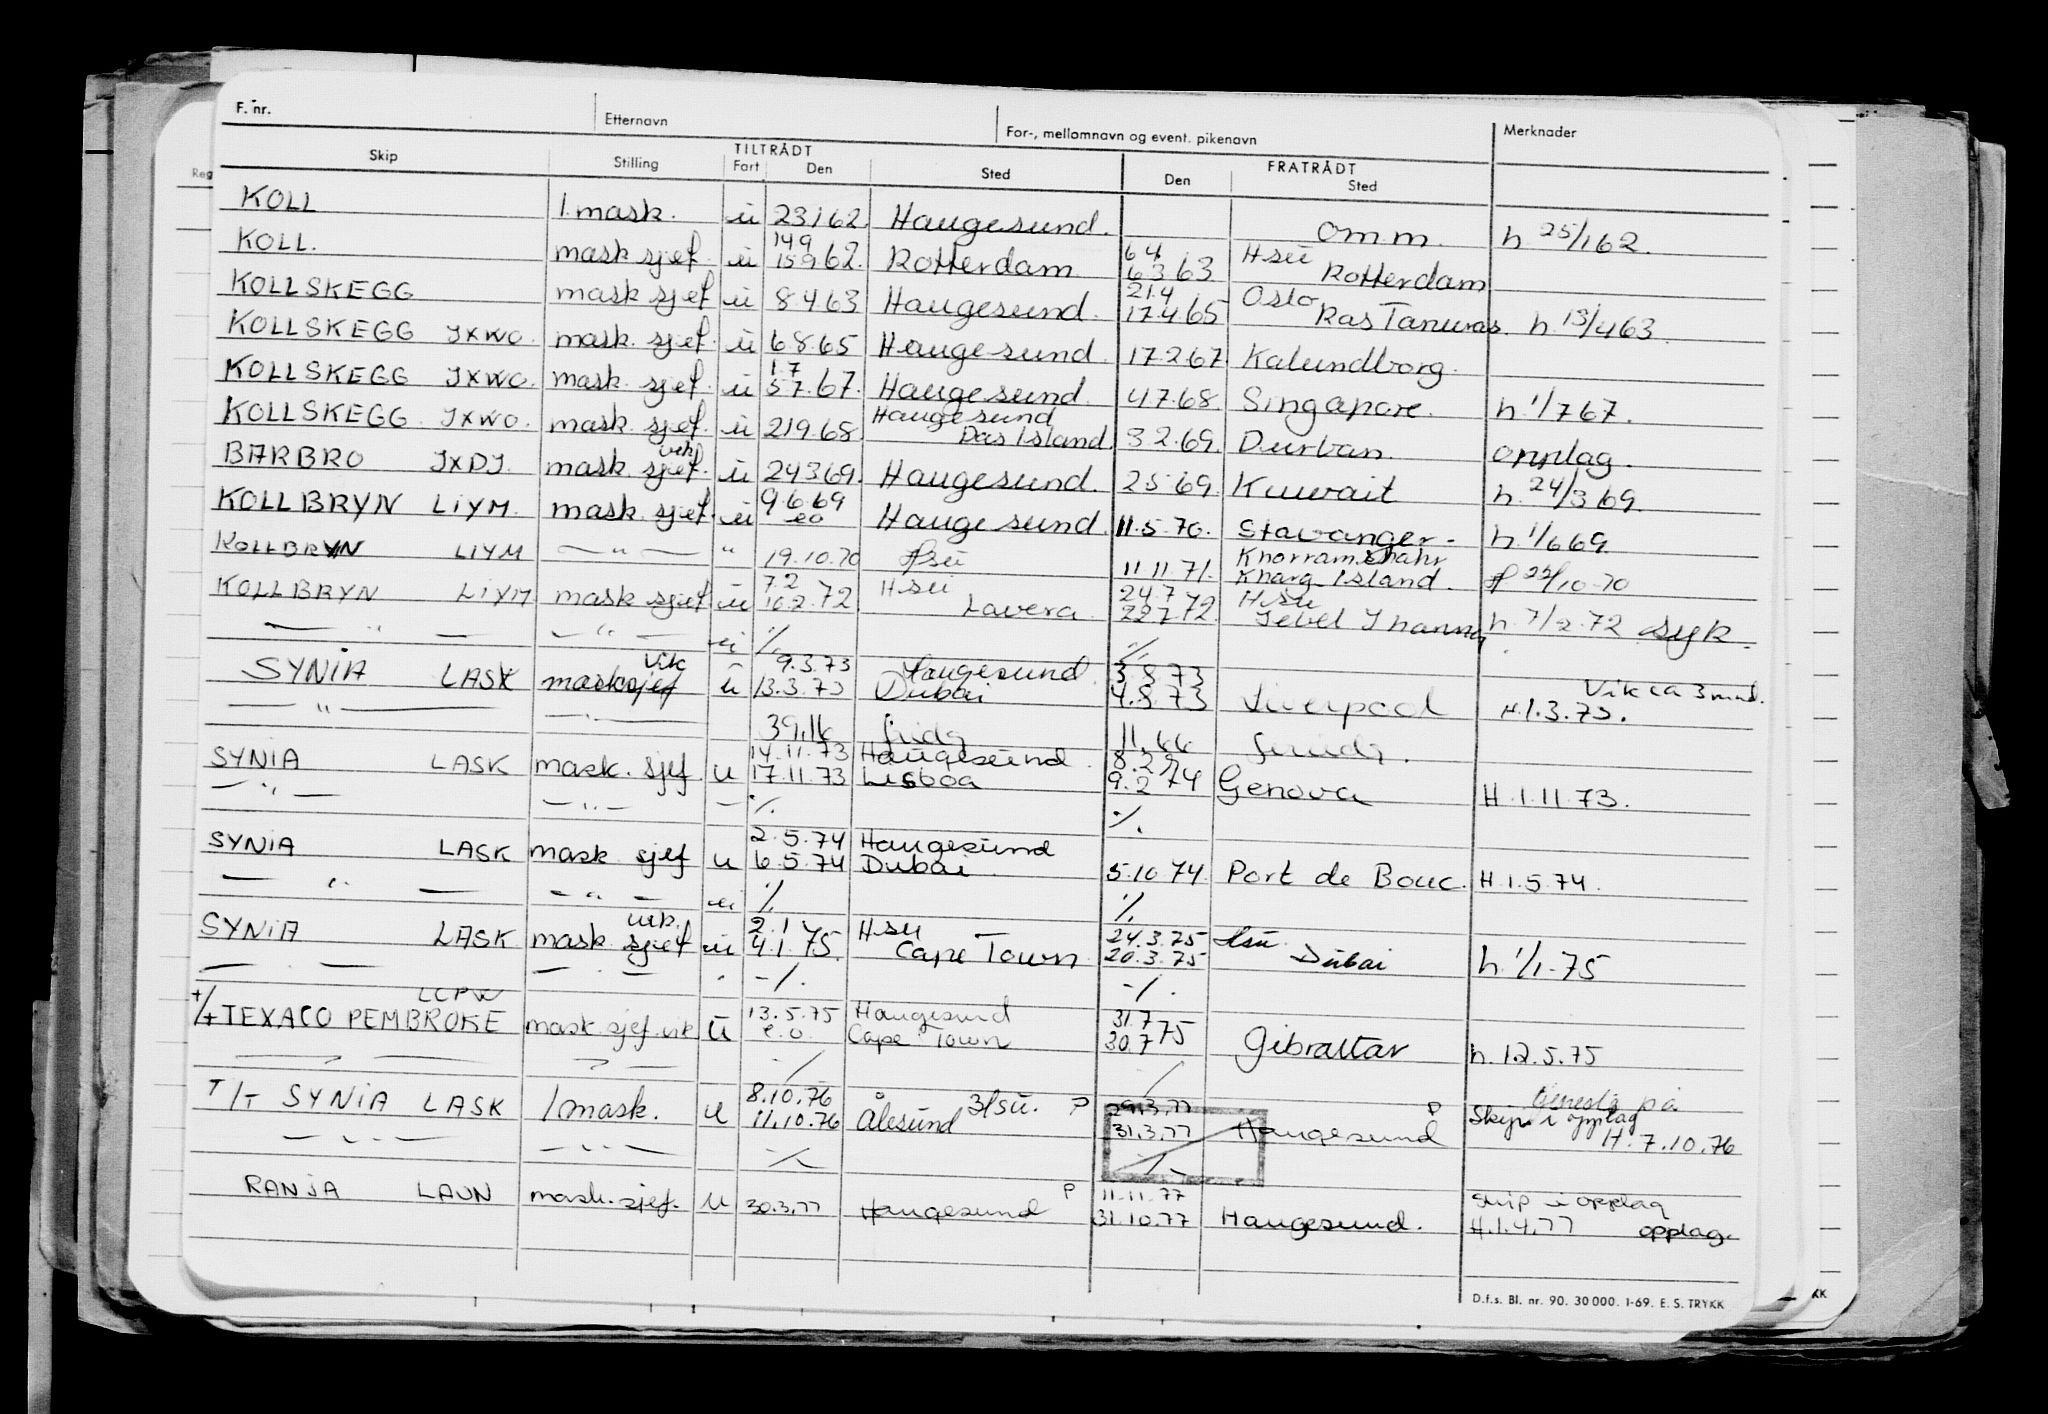 F. nr. Etternavn For-, mellomnavn og event. pikenavn Merknader
TILTRÅDT FRATRÅDT
Skip Stilling Fart Den Sted Den Sted
KOLL 1. mask. u 23162. Haugesund. Omm. h. 25/162.
KOLL. mask sjef. u 149 15962. Rotterdam 64 6363 Hsu Rotterdam
KOLLSKEGG mask sjef u 8463 Haugesund. 21.4 17.4.65 Oslo Ras Tanuras h. 13/463.
KOLLSKEGG JXWO. mask. sjef. u 6.8.65 Haugesund. 17.2.67. Kalundborg.
KOLLSKEGG JXWO. mask. sjef. u 1.7 57.67. Haugesund. 4.7.68. Singapore. h. 1/767.
KOLLSKEGG JXWO. mask. sjef. u 219.68 Haugesund Das Island. 3.2.69. Durban. opplag.
BARBRO JXDJ. mask. sjef. vik u 24369. Haugesund. 2.5.69. Kuwait h. 24/369.
KOLLBRYN LIYM. mask. sjef. u 9.6.69 eo Haugesund. 11.5.70. Stavanger- h. 1/669
KOLLBRYN LIYM — " — " 19.10.70 Hsu 11.11.71. Khorramshahr Kharg Island.
KOLLBRYN LIYM mask sjef u 7.2 16.2.72 Hsu Lavera 24.7 22772. Hsu h. 7/2.72 syk.
— " — — " — ./. ./.
SYNIA LASK masksjef vik u 9.3.73 13.3.73 Haugesund Dubai 3.8.73 4.8.73 Liverpool Vik ca 3 mnd. H.1.3.73.
— " — — " —
SYNIA LASK mask. sjef. u 14.11.73 17.11.73 Haugesund Lisboa 8.2 9.2 74 Genova H.1.11.73.
— " — — " — — ./. ./.
SYNIA LASK mask sjef u 2.5.74 6.5.74 Haugesund Dubai 5.10.74. Port de Bouc. H.1.5.74.
— " — — " — ./. ./.
SYNIA LASK mask sjef vik. u 2.1 4.1.75. Hsu Cape Town 24.3.75 20.3.75 Hsu. Dubai h. 1/1.75
— . — — . — -/. -/.
T/T TEXACO PEMBROKE LCPW mask sjef. vik u 13.5.75 e.o. Haugesund Cape Town 31.7 30.7 75 Gibraltar h. 12.5.75
T/T SYNIA LASK 1mask. u 8.10.76 11.10.76 Ålesund Hsu. P 29.3.77 31.3.77 Haugesund P Tjeneste på Skip i opplag H.7.10.76
— " — — " — ./. ./.
RANJA LAUN mask. sjef. u 30.3.77 Haugesund P 11.11.77 31.10.77 Haugesund. Skip i opplag H.1.4.77 opplag.
D.f.s. Bl. nr. 90. 30 000. 1-69. E. S. TRYKK